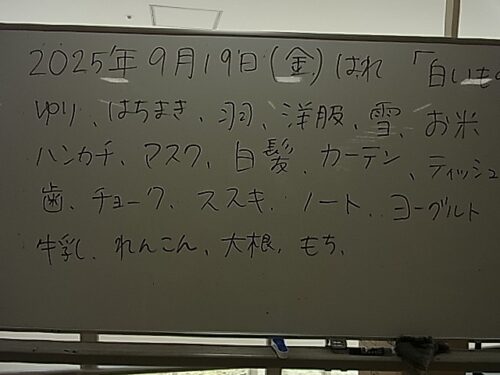 2025年9月19日(金) はれ 「白いも
ゆり、はちまき、羽、洋服、雪、お米
ハンカチ、マスク、白髪、カーテン、ティッシュ
歯、チョーク、ススキ、ノート、ヨーグルト
牛乳、れんこん、大根、もち、